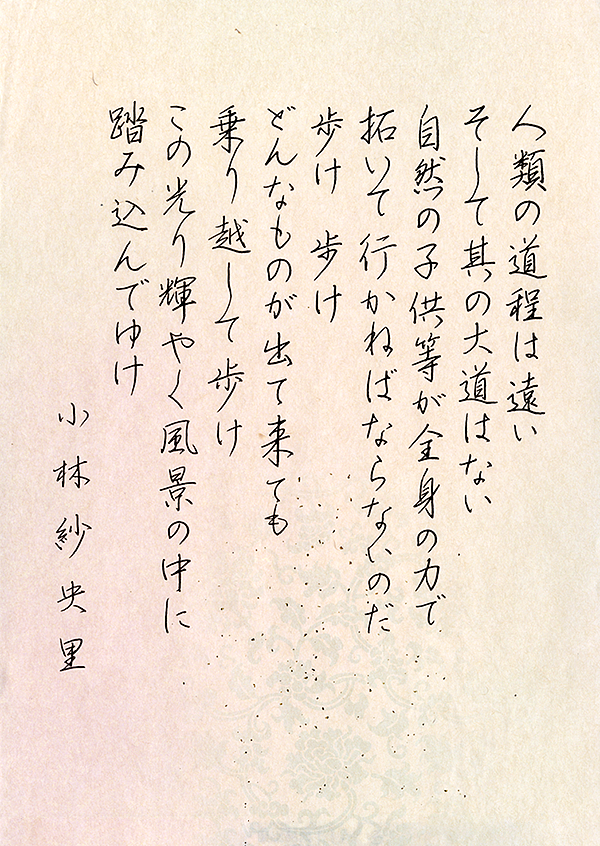 人類の道程は遠い
そして其の大道はない
自然の子供等が全身の力で
拓いて行かねばならないのだ
歩け 歩け
どんなものが出て来ても
乗り越して歩け
この光り輝やく風景の中に
踏み込んでゆけ
小林紗央里